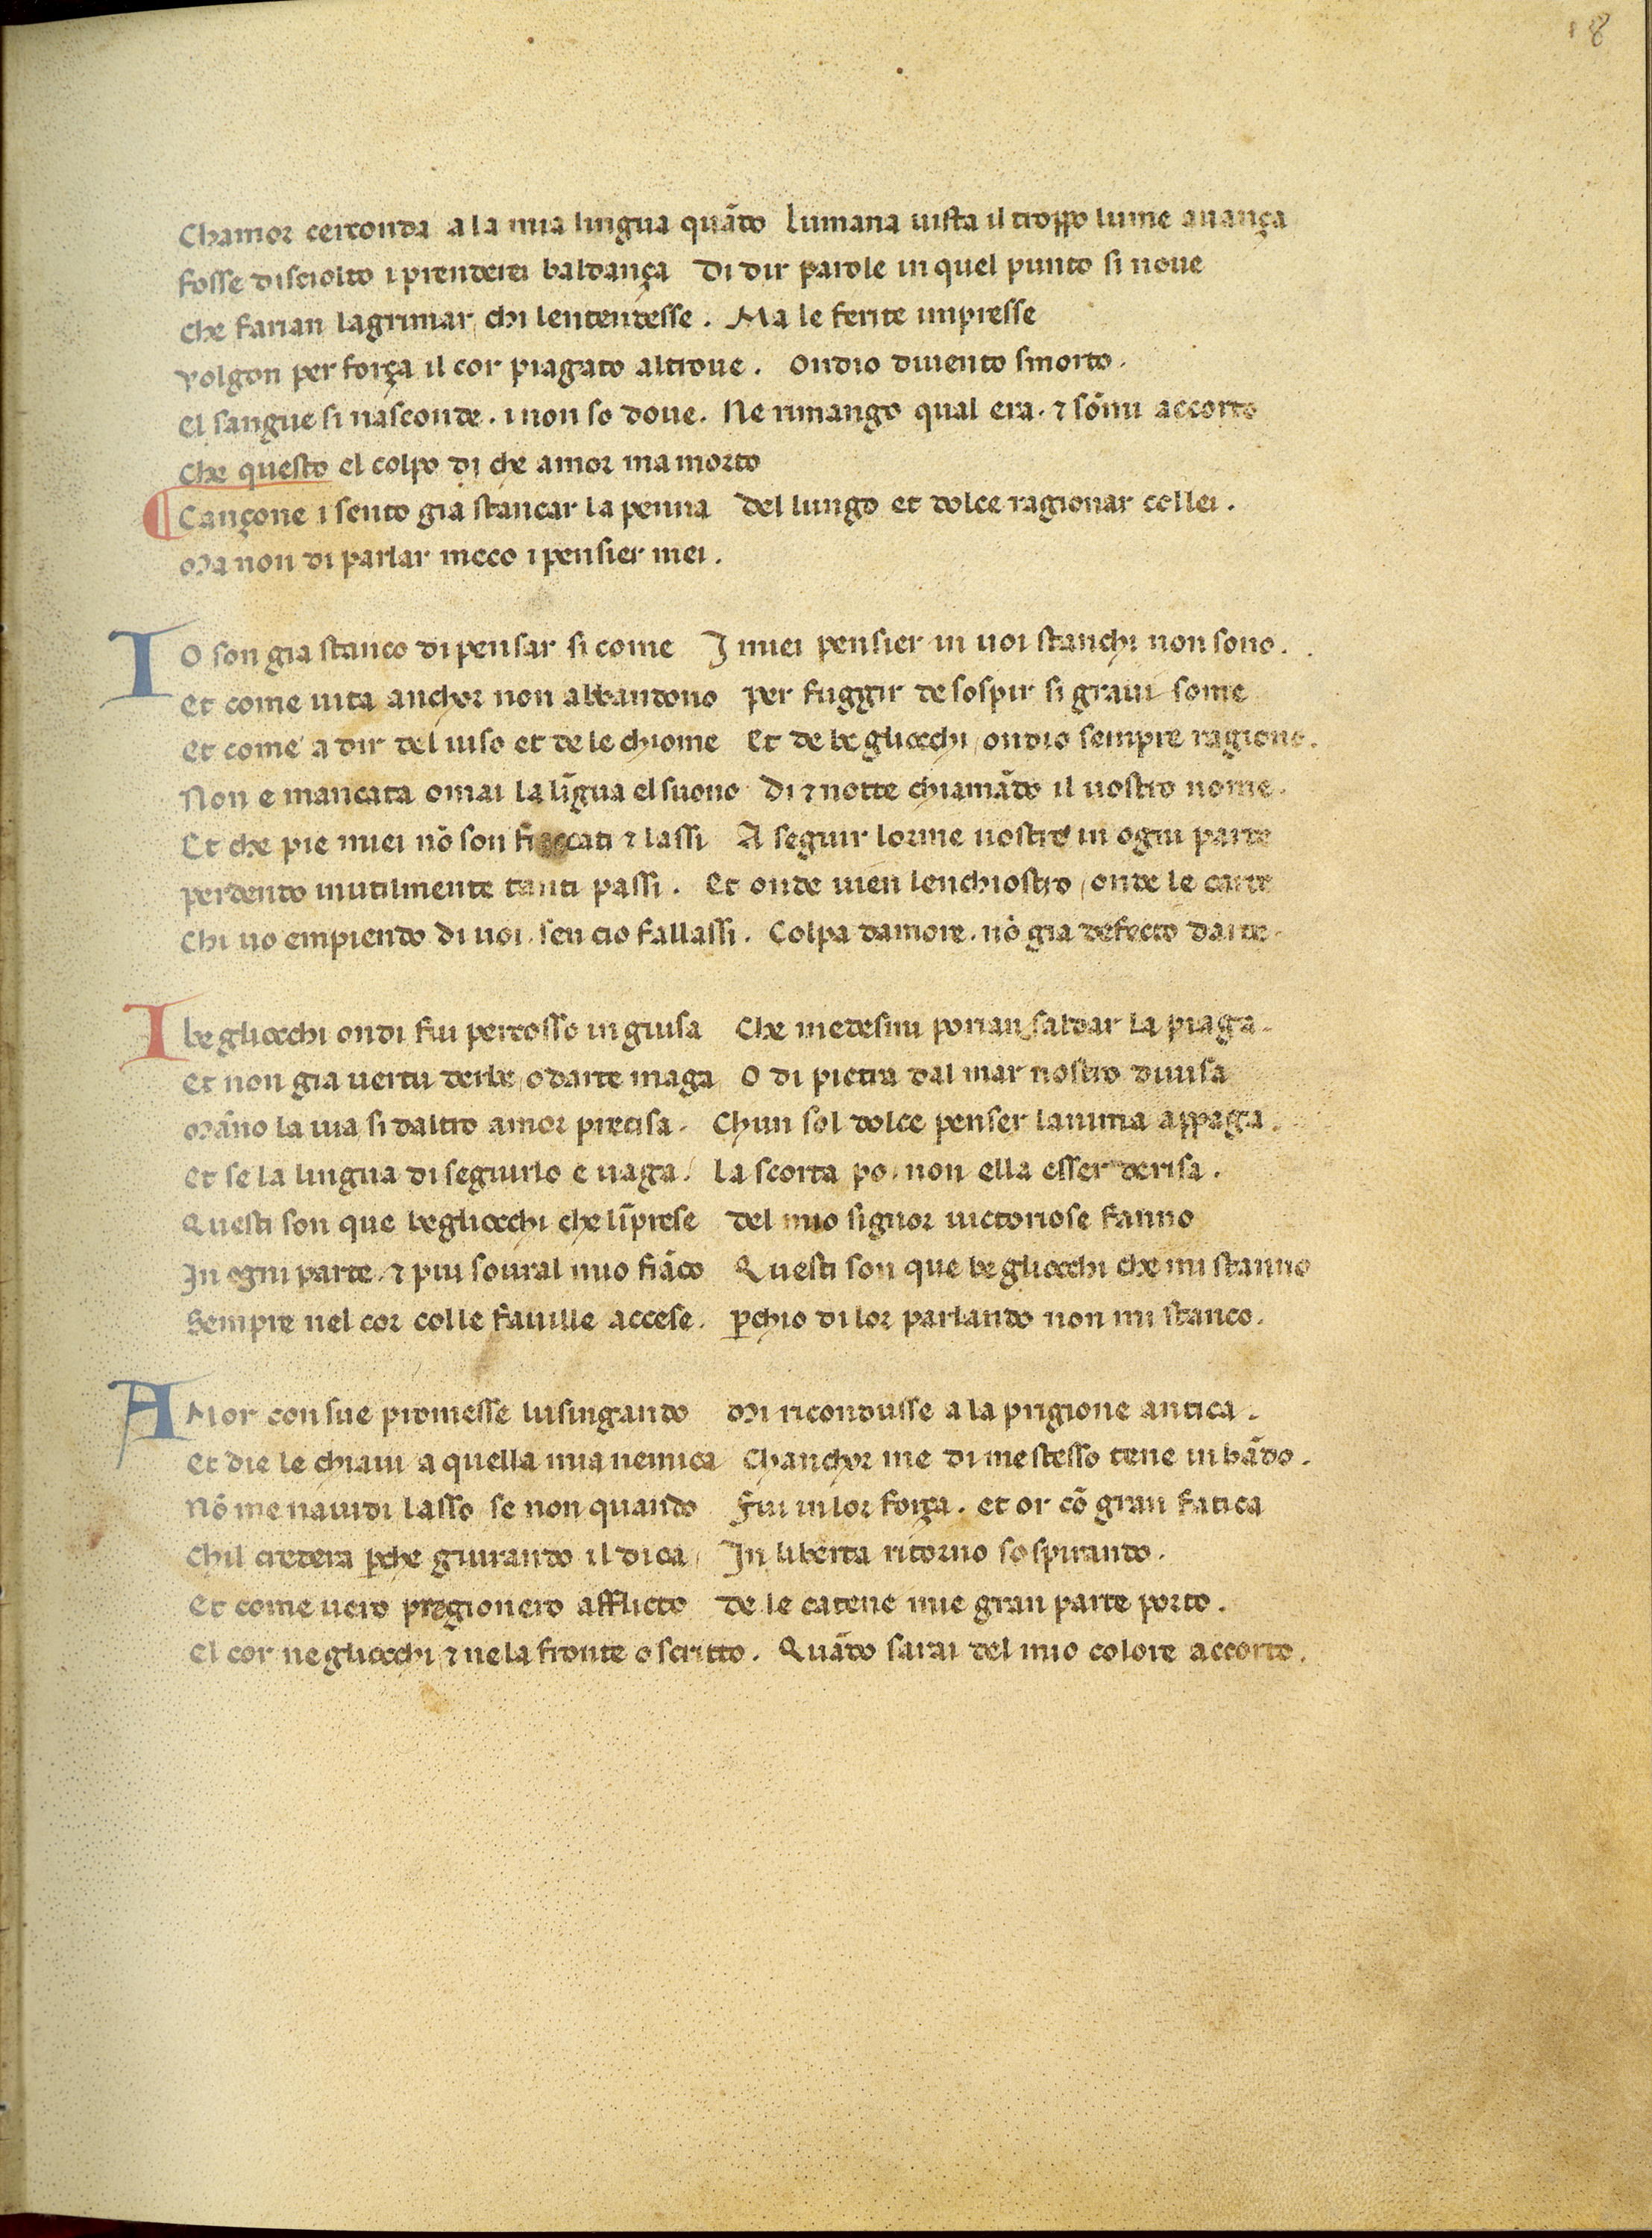 18
Chamor cerconda a la mia lingua quādo Lumana uista il troppo lume auança
fosse disciolto i prenderei baldança Di dir parole in quel punto si noue
che farian lagrimar, chi lentendesse. Ma le ferite impresse
Volgon per força il cor piagato altroue. Ondio diuento smorto.
El sangue si nasconde. i non so doue. Ne rimango qual era. ⁊ sōmi accorto
Che questo el colpo di che amor ma morto
Cançone i sento gia stancar la penna Del lungo et dolce ragionar collei.
Ma non di parlar meco i pensier mei.
IO son gia stanco di pensar si come I miei pensier in uoi stanchi non sono.
Et come uita anchor non abbandono per fuggir de sospir si graui some
Et come a dir del uiso et de le chiome Et de be gliocchi, ondio sempre ragiono.
Non e mancata omai la līgua el suono Di ⁊ notte chiamādo il uostro nome.
Et che pie miei nō son fiaccati ⁊ lassi A seguir lorme uostre in ogni parte
perdendo inutilmente tanti passi. Et onde uien lenchiostro, onde le carte
Chi uo empiendo di uoi. sen cio fallassi. Colpa damore. nō gia defecto darte.
I begliocchi ondi fui percosso in guisa Che medesmi porian saldar la piaga.
Et non gia uertu derbe, o darte maga O di pietra dal mar nostro diuisa
Māno la uia si daltro amor precisa. Chun sol dolce penser lanima appaga.
Et se la lingua di seguirlo e uaga. la scorta po. non ella esser derisa.
Questi son que begliocchi che līprese del mio signor uictoriose fanno
In ogni parte. ⁊ piu soural mio fiāco Questi son que begliocchi che mi stanno
Sempre nel cor colle fauille accese. ꝑchio di lor parlando non mi stanco.
AMor con sue promesse lusingando Mi ricondusse a la prigione antica.
Et die le chiaui a quella mia nemica Chanchor me di me stesso tene in bādo.
Nō me nauidi lasso se non quando Fui in lor força. et or cō gran fatica
Chil credera ꝑche giurando il dica, In liberta ritorno sospirando.
Et come uero pregionero afflicto de le catene mie gran parte porto.
El cor negliocchi ⁊ ne la fronte o scritto. Quādo sarai del mio colore accorto.